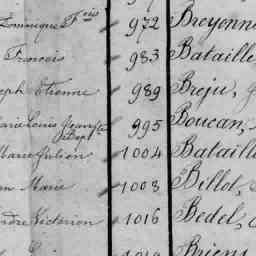 Dominique Fois 972 Breyonne
François 983 Bataille,
Etienne 989 Breju,
Marie Louis Jean Bapt 995 Boucan,
Marie Julien 1004 Bataille
Marie 1008 Billot,
Victorien 1016 Bedel,